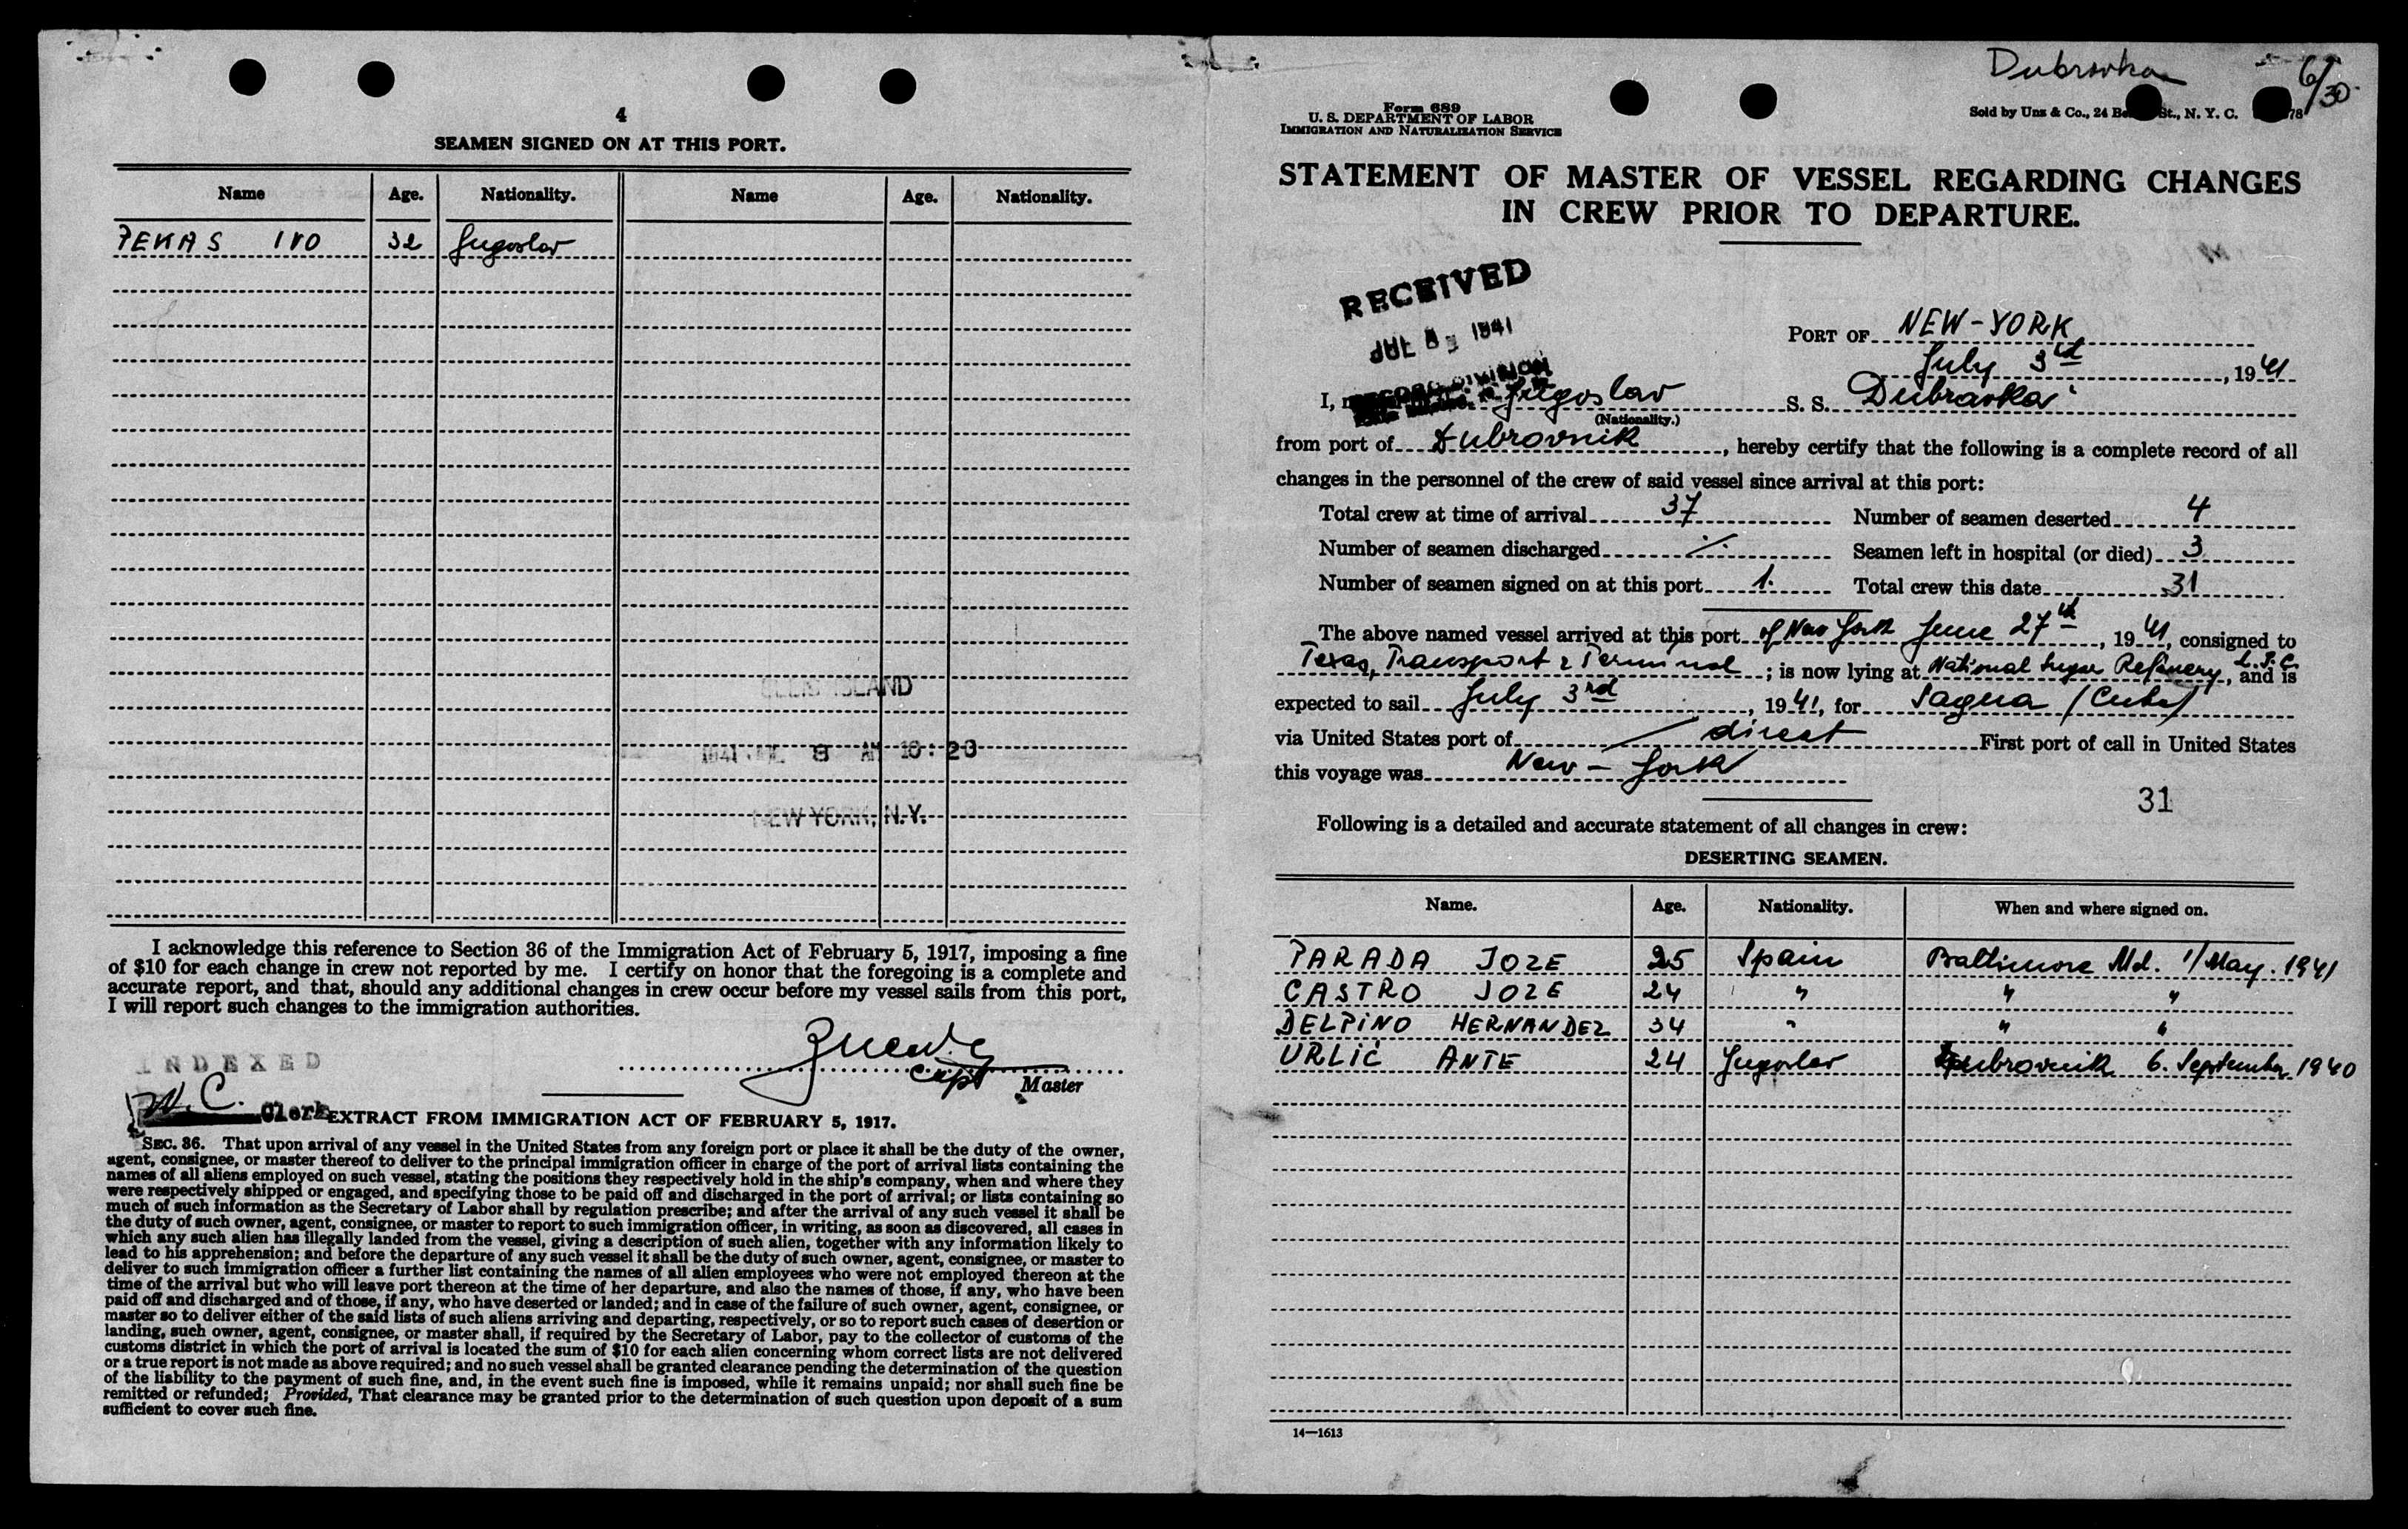 4
SEAMEN SIGNED ON AT THIS PORT.
Name Age. Nationality. Name Age. Nationality.
PEKAS IVO 32 Jugoslav
ELLIS ISLAND
1941 JUL 8 AM 10:20
NEW YORK, N.Y.
I acknowledge this reference to Section 36 of the Immigration Act of February 5, 1917, imposing a fine
of $10 for each change in crew not reported by me. I certify on honor that the foregoing is a complete and
accurate report, and that, should any additional changes in crew occur before my vessel sails from this port,
I will report such changes to the immigration authorities.
Capt Master
INDEXED
Clerk
EXTRACT FROM IMMIGRATION ACT OF FEBRUARY 5, 1917.
SEC. 36. That upon arrival of any vessel in the United States from any foreign port or place it shall be the duty of the owner,
agent, consignee, or master thereof to deliver to the principal immigration officer in charge of the port of arrival lists containing the
names of all aliens employed on such vessel, stating the positions they respectively hold in the ship's company, when and where they
were respectively shipped or engaged, and specifying those to be paid off and discharged in the port of arrival; or lists containing so
much of such information as the Secretary of Labor shall by regulation prescribe; and after the arrival of any such vessel it shall be
the duty of such owner, agent, consignee, or master to report to such immigration officer, in writing, as soon as discovered, all cases in
which any such alien has illegally landed from the vessel, giving a description of such alien, together with any information likely to
lead to his apprehension; and before the departure of any such vessel it shall be the duty of such owner, agent, consignee, or master to
deliver to such immigration officer a further list containing the names of all alien employees who were not employed thereon at the
time of the arrival but who will leave port thereon at the time of her departure, and also the names of those, if any, who have been
paid off and discharged and of those, if any, who have deserted or landed; and in case of the failure of such owner, agent, consignee, or
master so to deliver either of the said lists of such aliens arriving and departing, respectively, or so to report such cases of desertion or
landing, such owner, agent, consignee, or master shall, if required by the Secretary of Labor, pay to the collector of customs of the
customs district in which the port of arrival is located the sum of $10 for each alien concerning whom correct lists are not delivered
or a true report is not made as above required; and no such vessel shall be granted clearance pending the determination of the question
of the liability to the payment of such fine, and, in the event such fine is imposed, while it remains unpaid; nor shall such fine be
remitted or refunded; Provided, That clearance may be granted prior to the determination of such question upon deposit of a sum
sufficient to cover such fine.
Dubravka 6/30
Form 689
U. S. DEPARTMENT OF LABOR
IMMIGRATION AND NATURALIZATION SERVICE
Sold by Unz & Co., 24 St., N. Y. C.
STATEMENT OF MASTER OF VESSEL REGARDING CHANGES
IN CREW PRIOR TO DEPARTURE.
RECEIVED
JUL 1941
RECORD DIVISION
PORT OF NEW-YORK
July 3rd, 1941
I, Jugoslav S. S. Dubravka
(Nationality.)
from port of Dubrovnik, hereby certify that the following is a complete record of all
changes in the personnel of the crew of said vessel since arrival at this port:
Total crew at time of arrival 37 Number of seamen deserted 4
Number of seamen discharged ./. Seamen left in hospital (or died) 3
Number of seamen signed on at this port 1. Total crew this date 31
The above named vessel arrived at this port of New York June 27th, 1941, consigned to
Texas, Transport & Terminal; is now lying at National Sugar Refinery, L.I.C., and is
expected to sail July 3rd, 1941, for Sagua (Cuba)
via United States port of direct First port of call in United States
this voyage was New-York
31
Following is a detailed and accurate statement of all changes in crew:
DESERTING SEAMEN.
Name. Age. Nationality. When and where signed on.
PARADA JOZE 25 Spain Baltimore Md. 1/May. 1941
CASTRO JOZE 24 " " "
DELPINO HERNANDEZ 34 " " "
URLIĆ ANTE 24 Jugoslav Dubrovnik 6. September 1940
14—1613